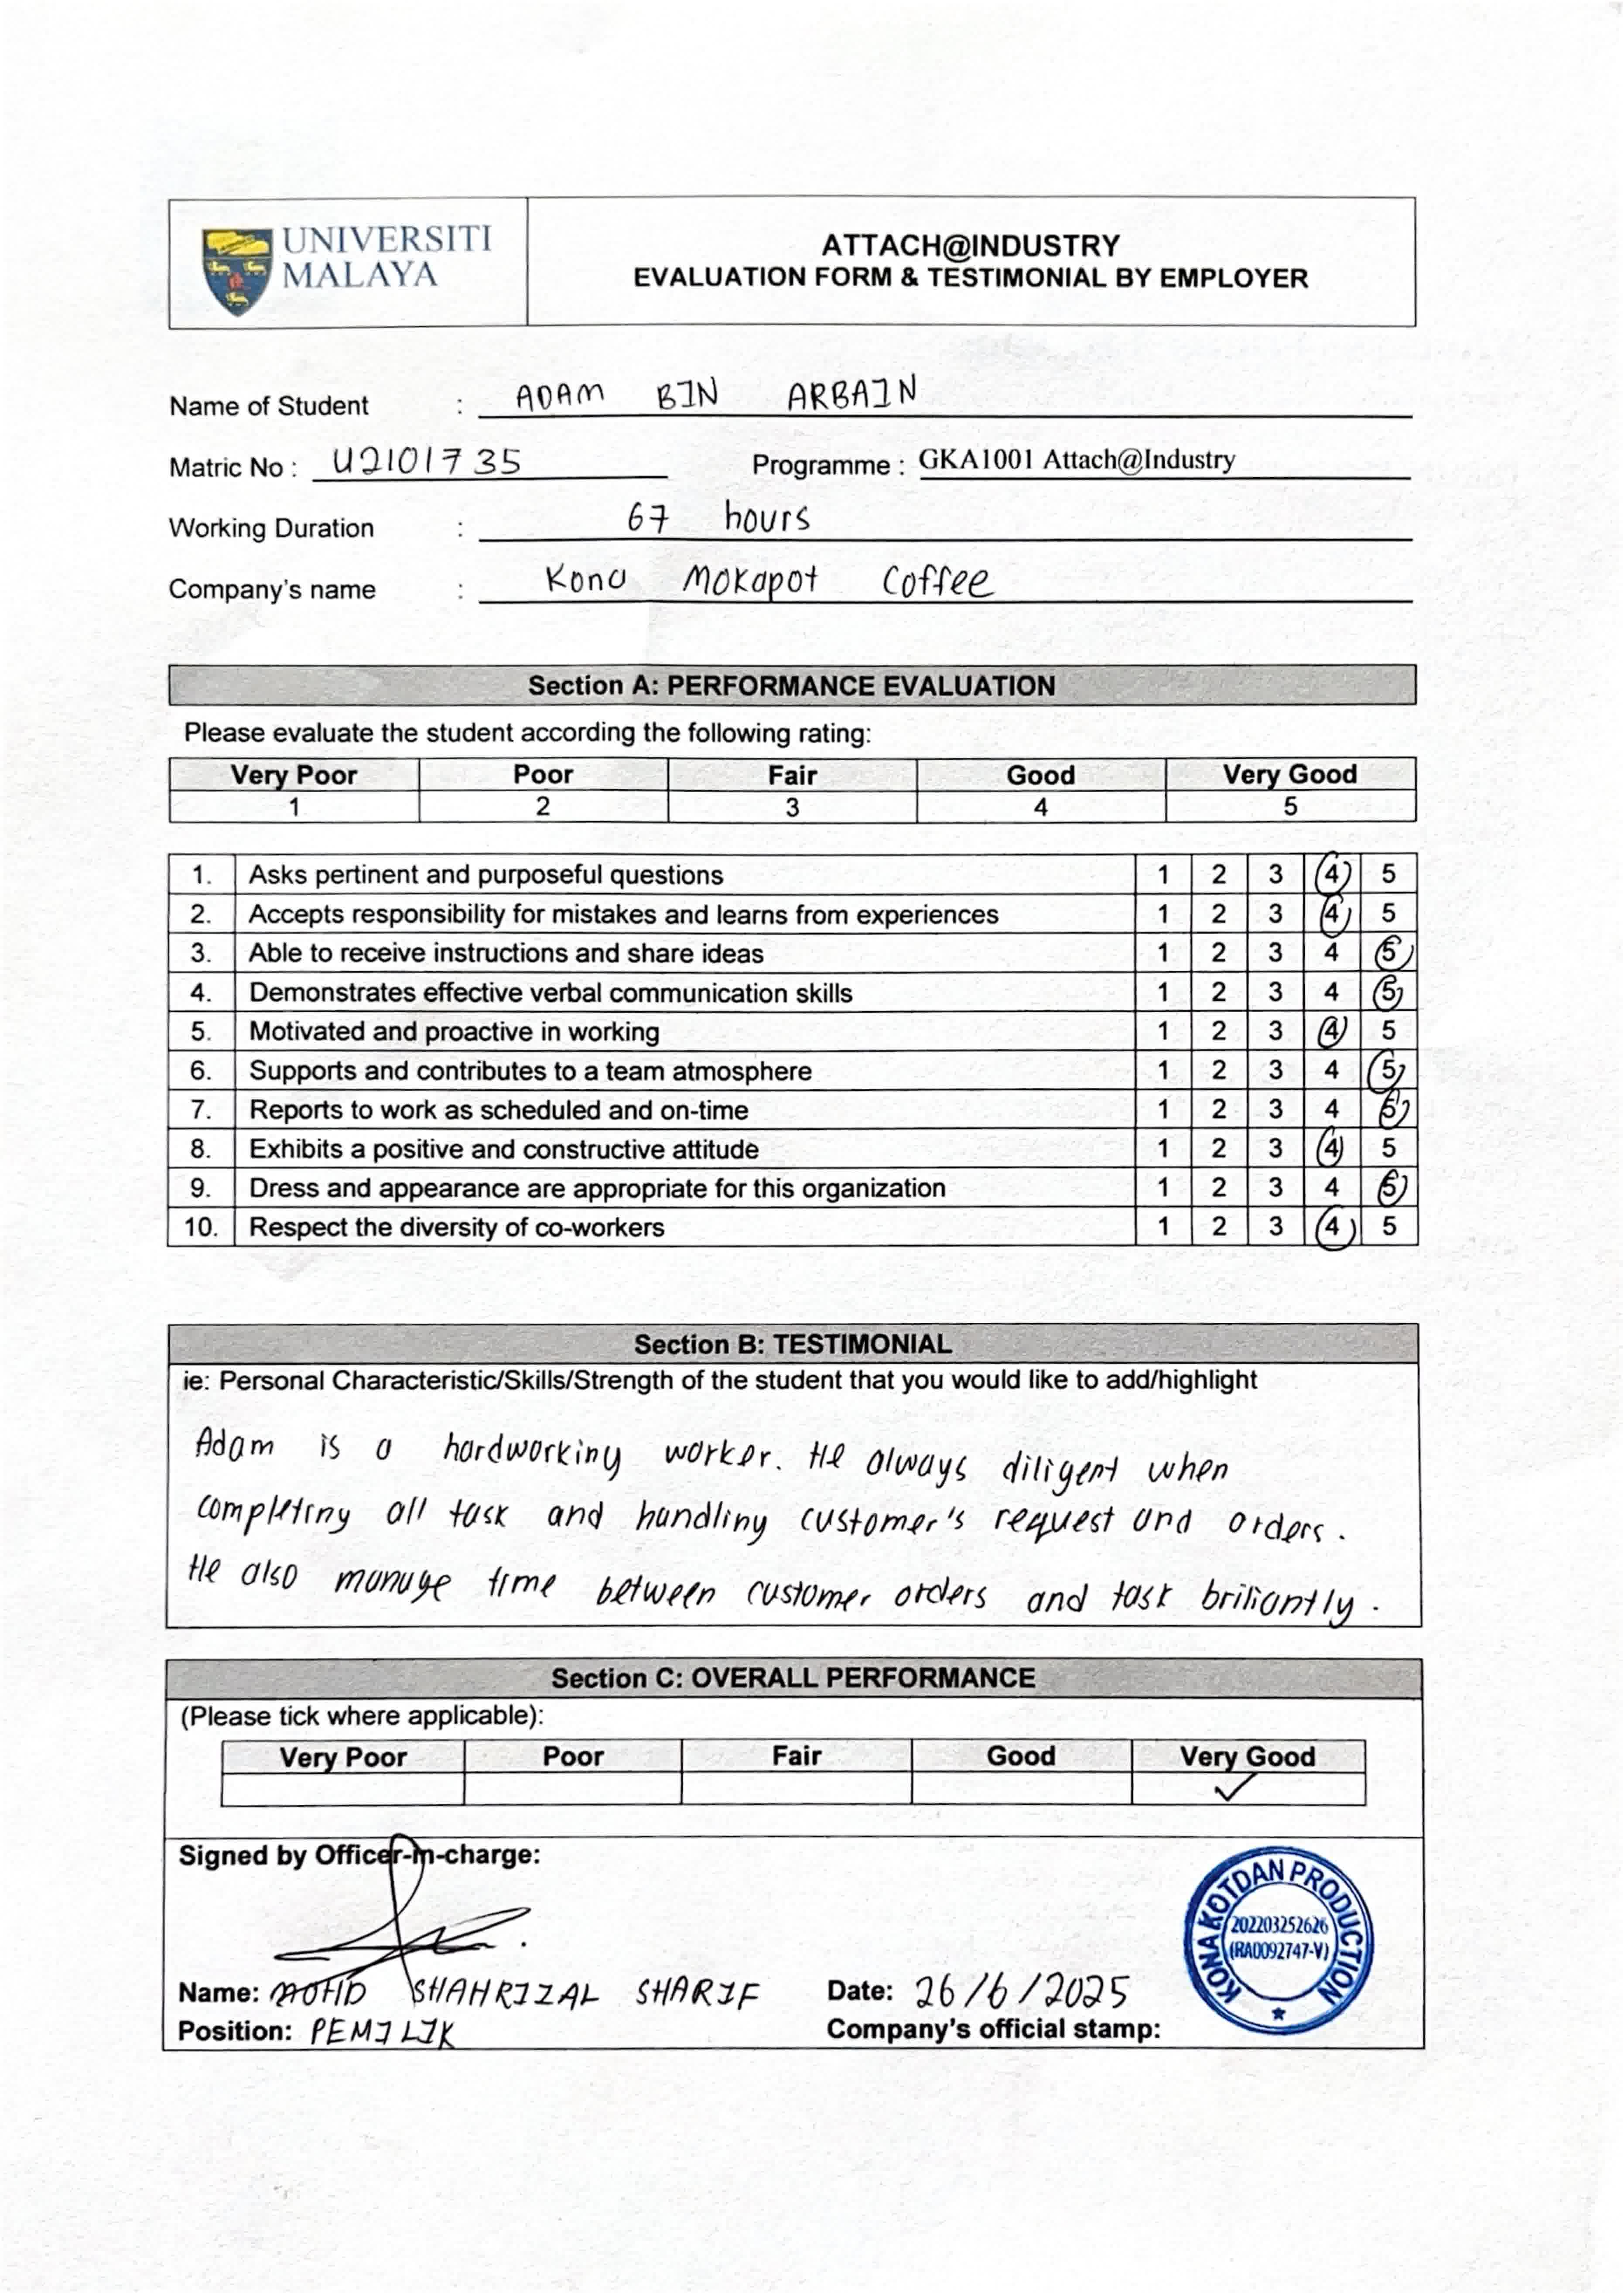 UNIVERSITI
MALAYA
ATTACH@INDUSTRY
EVALUATION FORM & TESTIMONIAL BY EMPLOYER
Name of Student : ADAM BIN ARBAIN
Matric No : U2101735 Programme : GKA1001 Attach@Industry
Working Duration : 67 hours
Company's name : Kona Mokapot Coffee
Section A: PERFORMANCE EVALUATION
Please evaluate the student according the following rating:
Very Poor Poor Fair Good Very Good
1 2 3 4 5
1. Asks pertinent and purposeful questions 1 2 3 4 5
2. Accepts responsibility for mistakes and learns from experiences 1 2 3 4 5
3. Able to receive instructions and share ideas 1 2 3 4 5
4. Demonstrates effective verbal communication skills 1 2 3 4 5
5. Motivated and proactive in working 1 2 3 4 5
6. Supports and contributes to a team atmosphere 1 2 3 4 5
7. Reports to work as scheduled and on-time 1 2 3 4 5
8. Exhibits a positive and constructive attitude 1 2 3 4 5
9. Dress and appearance are appropriate for this organization 1 2 3 4 5
10. Respect the diversity of co-workers 1 2 3 4 5
Section B: TESTIMONIAL
ie: Personal Characteristic/Skills/Strength of the student that you would like to add/highlight
Adam is a hardworking worker. He always diligent when
completing all task and handling customer's request and orders.
He also manage time between customer orders and task briliantly.
Section C: OVERALL PERFORMANCE
(Please tick where applicable):
Very Poor Poor Fair Good Very Good
✓
Signed by Officer-in-charge:
KONAKOTDAN PRODUCTION
202203252626
(RA0092747-V)
Name: MOHD SHAHRIZAL SHARIF Date: 26/6/2025
Position: PEMILIK Company's official stamp: